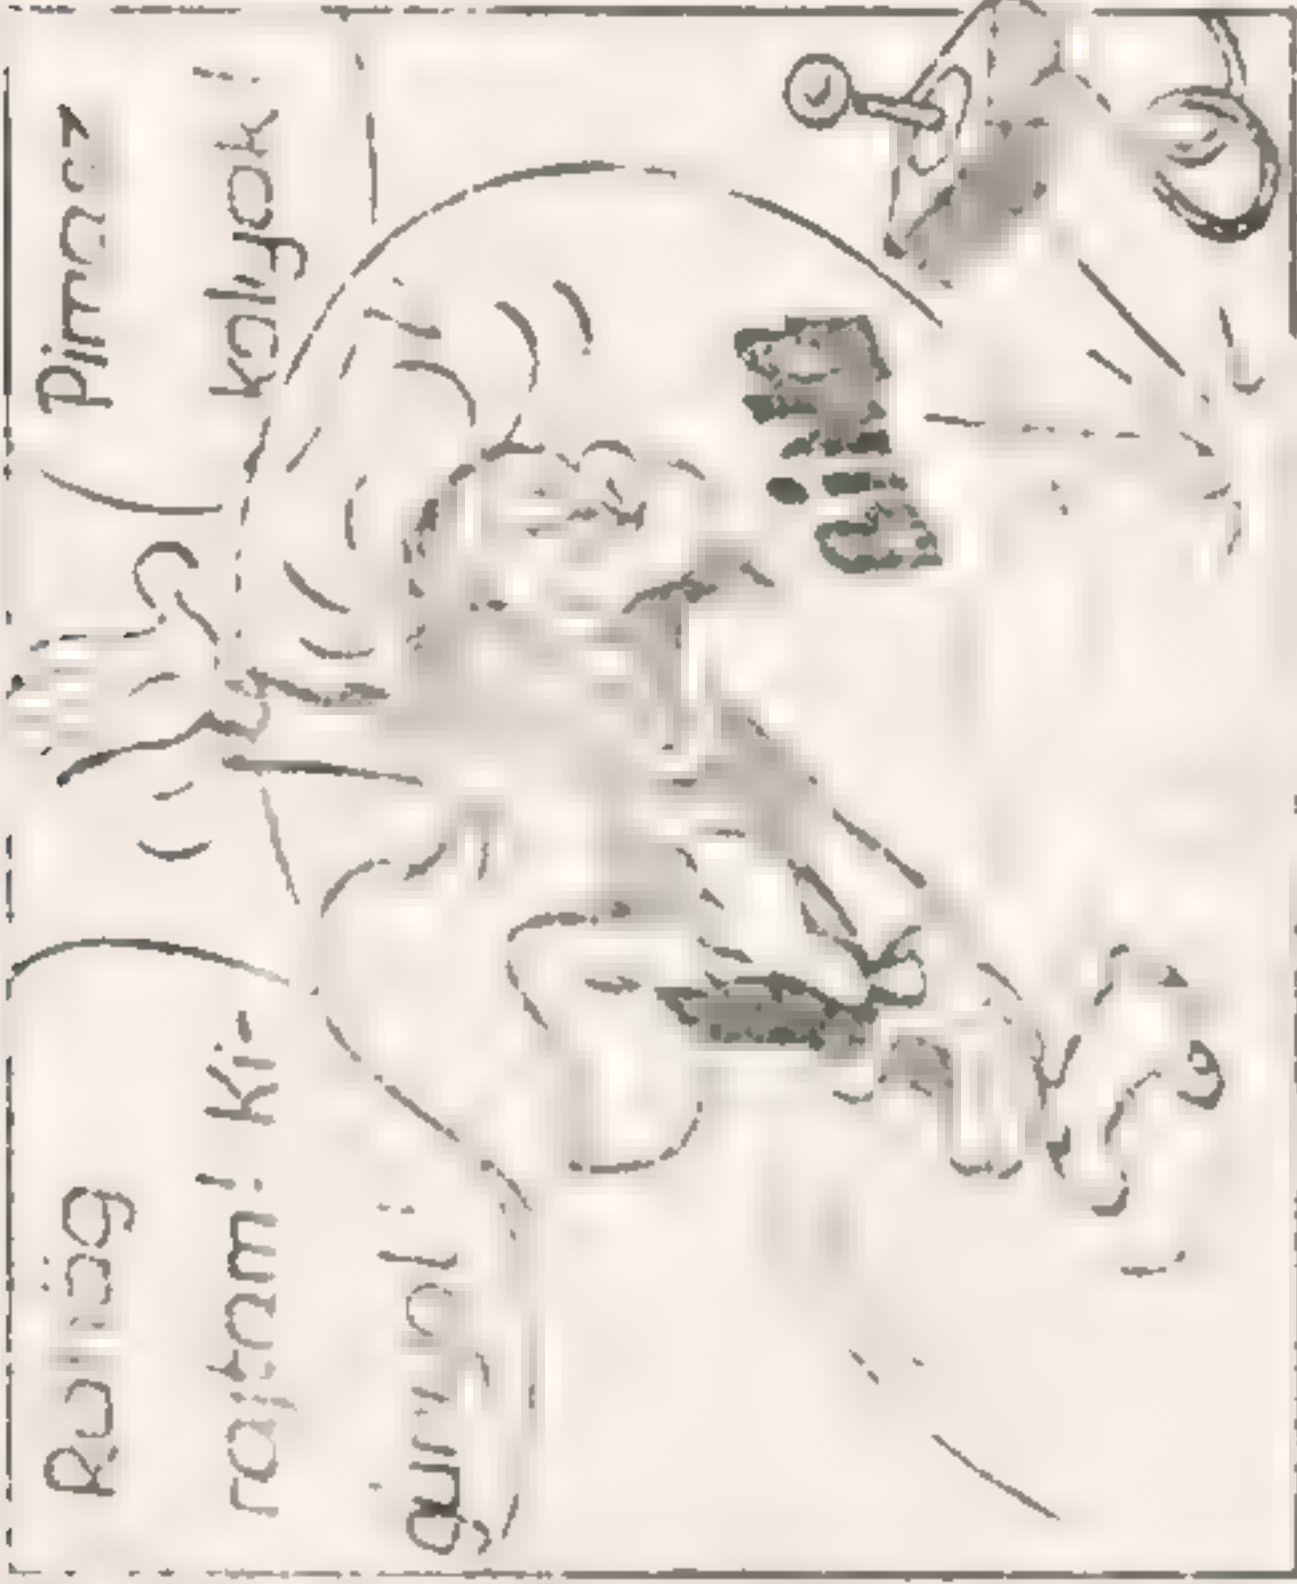 Röhög
rajtam! Ki-
gúnyol!
Pimasz
kölyök!